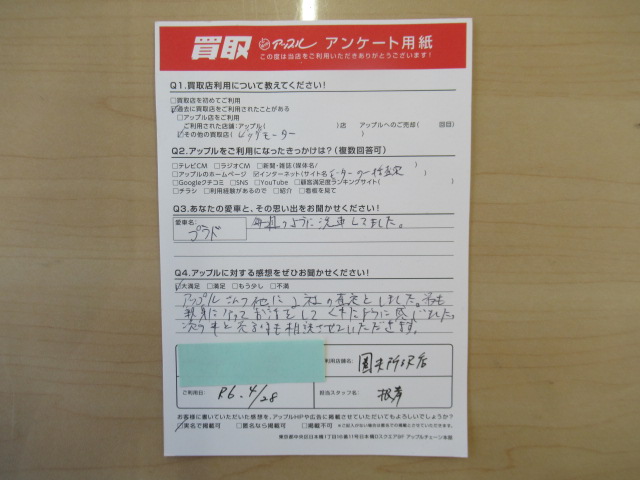 買取 アップル アンケート用紙
この度は当店をご利用いただきありがとうございます!
Q1.買取店利用について教えてください!
□買取店を初めてご利用
☑過去に買取店をご利用されたことがある
□アップル店をご利用
ご利用された店舗:アップル( )店 アップルへのご売却( 回目)
☑その他の買取店( ビッグモーター )
Q2.アップルをご利用になったきっかけは?(複数回答可)
□テレビCM □ラジオCM □新聞・雑誌(媒体名/ )
□アップルのホームページ ☑インターネット(サイト名 )
□Googleクチコミ □SNS □YouTube □顧客満足度ランキングサイト( )
□チラシ □利用経験があるので □紹介 □看板を見て
Q3.あなたの愛車と、その思い出をお聞かせください!
愛車名: 毎週のように洗車してました。
プラド
Q4.アップルに対する感想をぜひお聞かせください!
☑大満足 □満足 □もう少し □不満
アップルさんの他に2社の査定をしました。
親身になってお話をしてくれたように感じました。
次の車を売る時も相談させていただきます。
利用店舗名: 関東所沢店
ご利用日: R6.4/28 担当スタッフ名: 根岸
お客様に書いていただいた感想を、アップルHPや広告に掲載させていただいてもよろしいでしょうか?
☑実名で掲載可 □匿名なら掲載可 □掲載不可 ※ご記入がない場合は匿名での掲載とさせていただきます。
東京都中央区日本橋1丁目16番11号日本橋Dスクエア8F アップルチェーン本部